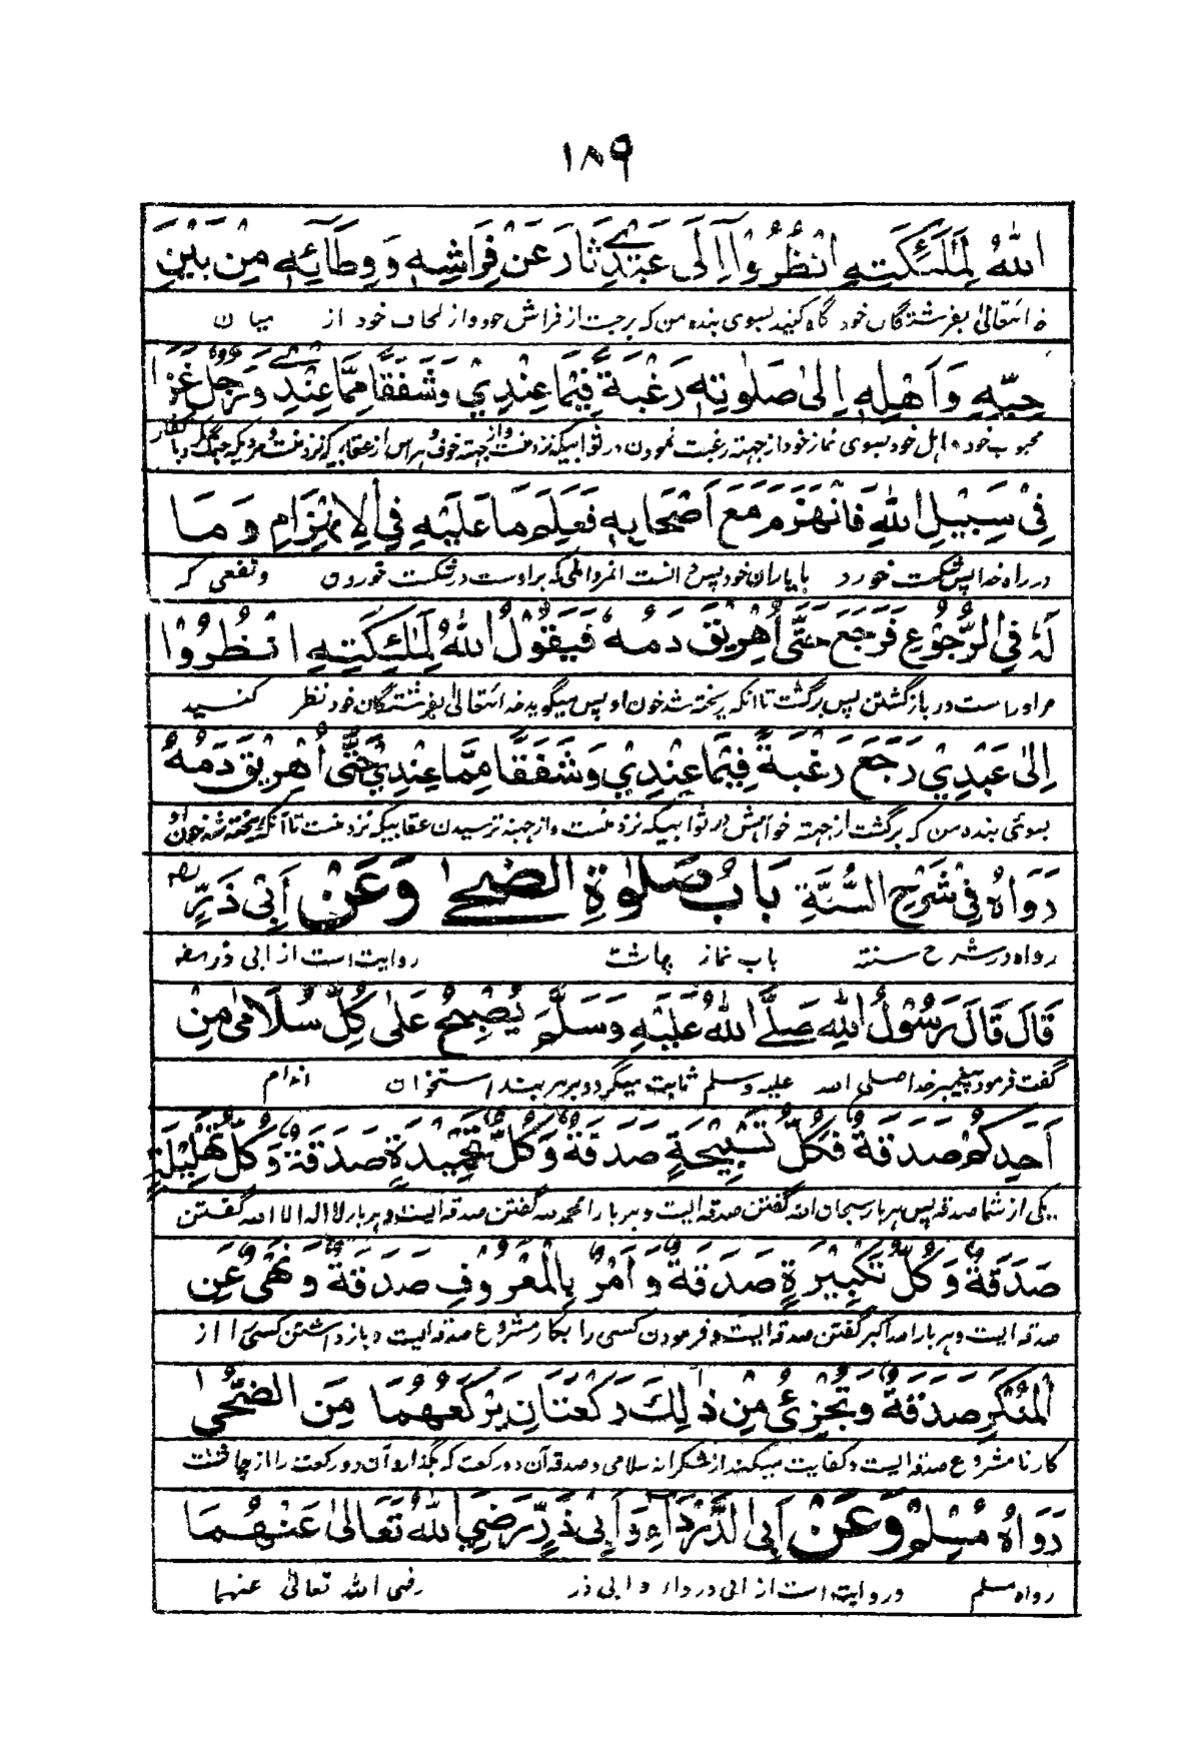 ١٨٩
اللهُ لِمَلٰٓئِكَتِهٖ انْظُرُوْا اِلٰى عَبْدِيْ ثَارَ عَنْ فِرَاشِهٖ وَوِطَائِهٖ مِنْ بَيْنِ
خدائتعالیٰ بفرشتگان خود نگاه کنید بسوی بنده من که برجست از فراش خود و از لحاف خود از میان
حِبِّهٖ وَاَهْلِهٖ اِلٰى صَلٰوتِهٖ رَغْبَةً فِيْمَا عِنْدِيْ وَشَفَقًا مِمَّا عِنْدِيْ وَرَجُلٌ غَزَا
محبوب خود و اهل خود بسوی نماز خود از جهته رغبت نمودن در ثوابیکه نزد منست و از جهته خوف و هراس از عقابیکه نزد منست و مردیکه جنگ کرد با کفار
فِيْ سَبِيْلِ اللهِ فَانْهَزَمَ مَعَ اَصْحَابِهٖ فَعَلِمَ مَا عَلَيْهِ فِي الْاِنْهِزَامِ وَمَا
در راه خدا پس شکست خورد با یاران خود پس دانست آنمرد آنچه که بر اوست در شکست خوردن و نفعی که
لَهٗ فِي الرُّجُوْعِ فَرَجَعَ حَتّٰى اُهْرِيْقَ دَمُهٗ فَيَقُوْلُ اللهُ لِمَلٰٓئِكَتِهٖ انْظُرُوْا
مر او راست در بازگشتن پس برگشت تا آنکه ریخته شد خون او پس میگوید خدائتعالیٰ بفرشتگان خود نظر کنسید
اِلٰى عَبْدِيْ رَجَعَ رَغْبَةً فِيْمَا عِنْدِيْ وَشَفَقًا مِمَّا عِنْدِيْ حَتّٰى اُهْرِيْقَ دَمُهٗ
بسوئی بنده من که برگشت از جهته خواهش در ثوابیکه نزد منست و از جهته ترسیدن عقابیکه نزد منست تا آنکه ریخته شد خون او
رَوَاهُ فِيْ شَرْحِ السُّنَّةِ بَابُ صَلٰوةِ الضُّحٰى وَعَنْ اَبِيْ ذَرٍّ رض
رواه در شرح سنته باب نماز چاشت روایت است از ابی ذر رضه
قَالَ قَالَ رَسُوْلُ اللهِ صَلَّى اللهُ عَلَيْهِ وَسَلَّمَ يُصْبِحُ عَلٰى كُلِّ سُلَامٰى مِنْ
گفت فرمود پیغمبر خدا صلی الله علیه وسلم ثابت میگردد بر هر بند استخوان اندام
اَحَدِكُمْ صَدَقَةٌ فَكُلُّ تَسْبِيْحَةٍ صَدَقَةٌ وَكُلُّ تَحْمِيْدَةٍ صَدَقَةٌ وَكُلُّ تَهْلِيْلَةٍ
یکی از شما صدقه پس هر بار سبحان الله گفتن صدقه ایست و هر بار الحمدلله گفتن صدقه ایست و هر بار لا اله الا الله گفتن
صَدَقَةٌ وَكُلُّ تَكْبِيْرَةٍ صَدَقَةٌ وَاَمْرٌ بِالْمَعْرُوْفِ صَدَقَةٌ وَنَهْيٌ عَنِ
صدقه ایست و هر بار الله اکبر گفتن صدقه ایست و فرمودن کسی را بکار مشروع صدقه ایست و باز داشتن کسی را از
الْمُنْكَرِ صَدَقَةٌ وَيُجْزِئُ مِنْ ذٰلِكَ رَكْعَتَانِ يَرْكَعُهُمَا مِنَ الضُّحٰى
کار نا مشروع صدقه ایست و کفایت میکند از شکرانه سلامی و صدقه آن دو رکعت که بگذارد آن دو رکعت را از چاشت
رَوَاهُ مُسْلِمٌ وَعَنْ اَبِي الدَّرْدَاءِ وَاَبِيْ ذَرٍّ رَضِيَ اللهُ تَعَالٰى عَنْهُمَا
رواه مسلم و روایت است از ابی درداء و ابی ذر رضی الله تعالیٰ عنهما